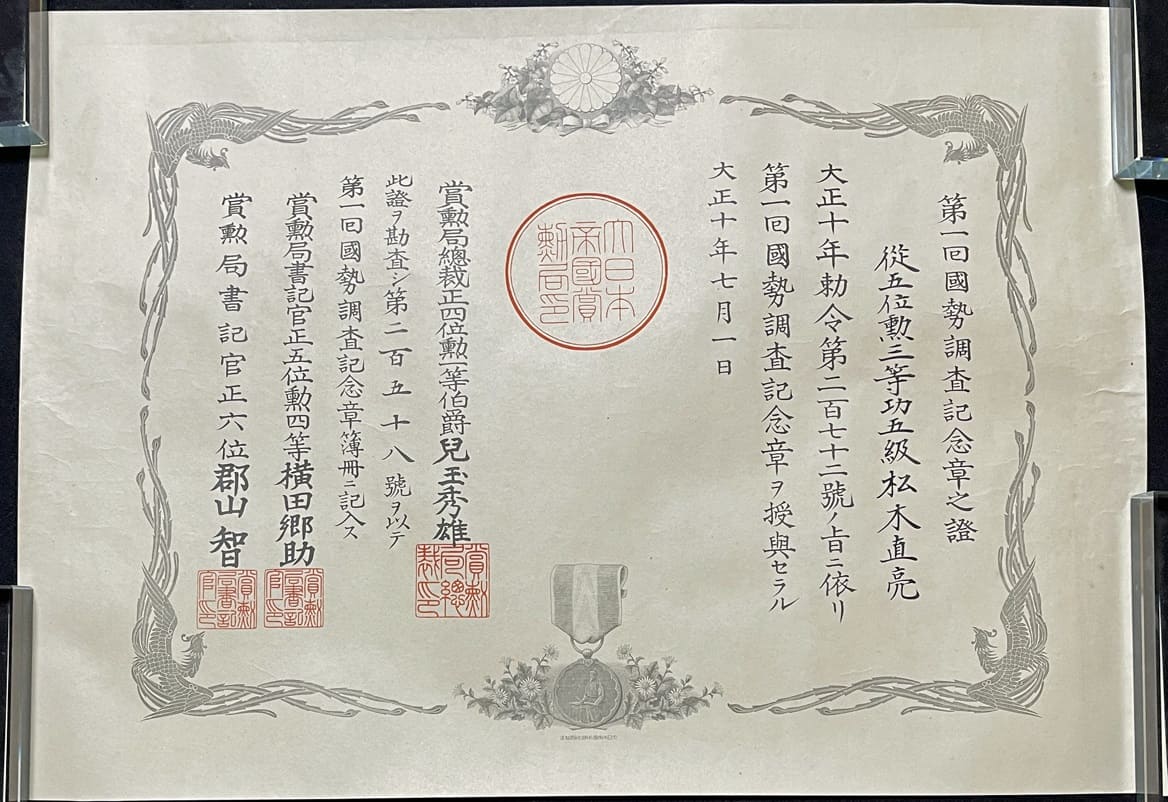 第一回國勢調査記念章之證
從五位勲三等功五級松木直亮
大正十年勅令第二百七十二號ノ旨ニ依リ
第一回國勢調査記念章ヲ授與セラル
大正十年七月一日
大日本
帝國賞
勲局印
賞勲局總裁正四位勲一等伯爵兒玉秀雄
賞勲
局總
裁印
此證ヲ勘査シ第二百五十八號ヲ以テ
第一回國勢調査記念章簿冊ニ記入ス
賞勲局書記官正五位勲四等横田郷助
賞勲
局書記
官印
賞勲局書記官正六位郡山智
賞勲
局書記
官印